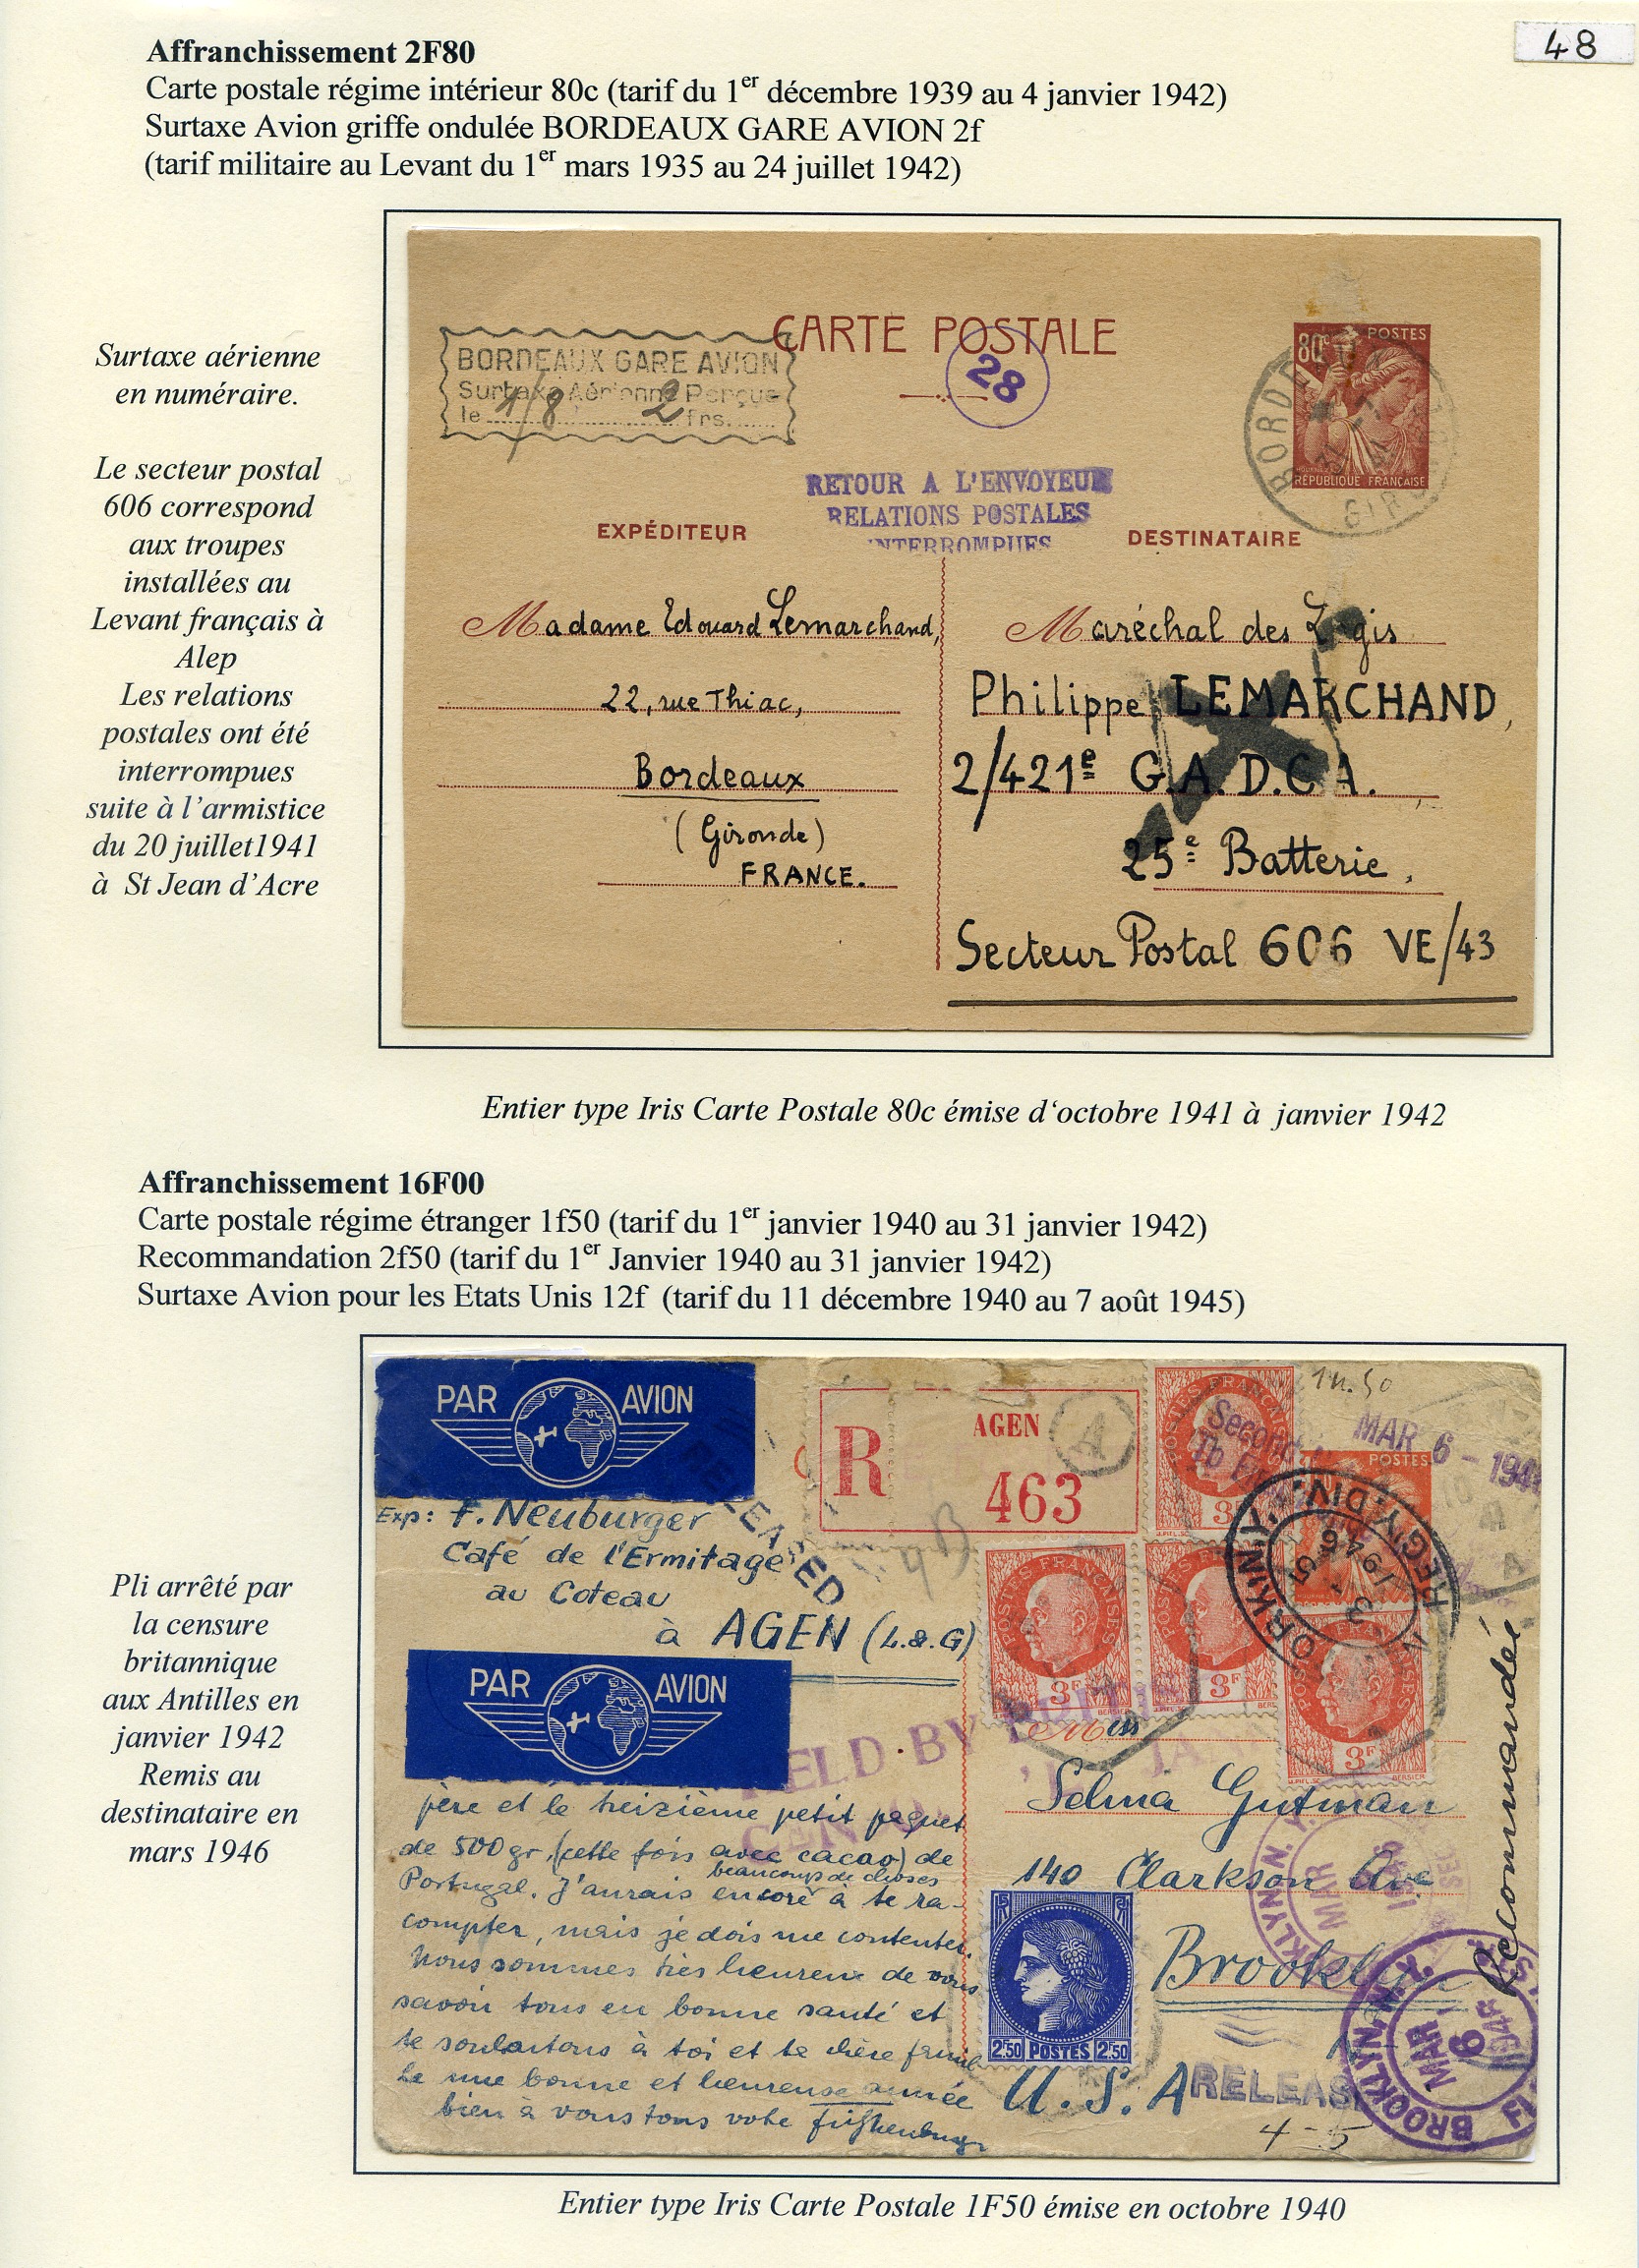 48
Affranchissement 2F80
Carte postale régime intérieur 80c (tarif du 1er décembre 1939 au 4 janvier 1942)
Surtaxe Avion griffe ondulée BORDEAUX GARE AVION 2f
(tarif militaire au Levant du 1er mars 1935 au 24 juillet 1942)
Surtaxe aérienne
en numéraire.
Le secteur postal
606 correspond
aux troupes
installées au
Levant français à
Alep
Les relations
postales ont été
interrompues
suite à l'armistice
du 20 juillet1941
à St Jean d'Acre
CARTE POSTALE
BORDEAUX GARE AVION
Surtaxe Aérienne Perçue
le 1/8 2 frs.
28
80c POSTES
RÉPUBLIQUE FRANÇAISE
RETOUR A L'ENVOYEUR
RELATIONS POSTALES
INTERROMPUES
EXPÉDITEUR
DESTINATAIRE
Madame Edouard Lemarchand,
22, rue Thiac,
Bordeaux
(Gironde)
FRANCE.
Maréchal des Logis
Philippe LEMARCHAND,
2/421e G.A.D.C.A.
25e Batterie,
Secteur Postal 606 VE/43
Entier type Iris Carte Postale 80c émise d'octobre 1941 à janvier 1942
Affranchissement 16F00
Carte postale régime étranger 1f50 (tarif du 1er janvier 1940 au 31 janvier 1942)
Recommandation 2f50 (tarif du 1er Janvier 1940 au 31 janvier 1942)
Surtaxe Avion pour les Etats Unis 12f (tarif du 11 décembre 1940 au 7 août 1945)
Pli arrêté par
la censure
britannique
aux Antilles en
janvier 1942
Remis au
destinataire en
mars 1946
PAR AVION
Exp: F. Neuburger
Café de l'Ermitage
au Coteau
à AGEN (L.&.G)
RELEASED
PAR AVION
R
AGEN
463
A
POSTES FRANÇAISES
3F
POSTES FRANÇAISES
3F
POSTES FRANÇAISES
3F
3F
POSTES
MAR 6 - 194
REGY. DIV.
HELD BY
père et le treizième petit paquet
de 500 gr. (cette fois avec cacao) de
beaucoup de choses
Portugal. J'aurais encore à te ra-
compter, mais je dois me contenter.
Nous sommes très heureux de vous
savoir tous en bonne santé et
te souhaitons à toi et ta chère famil
le une bonne et heureuse année
bien à vous tous votre
Miss
Selma Gutman
140 Clarkson Ave
Brooklyn
U.S.A
Recommandée
RF
2F50 POSTES 2F50
RELEAS
BROOKLYN, N.Y.
MAR
BROOKLYN, N.Y.
MAR 6
4-5
Entier type Iris Carte Postale 1F50 émise en octobre 1940